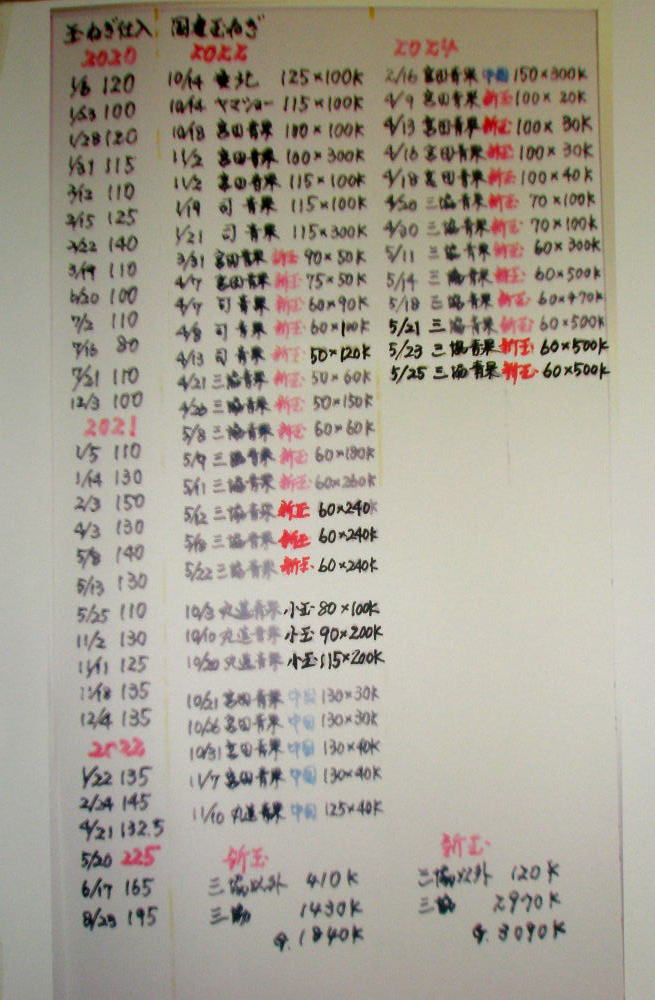 玉ねぎ仕入
2020
1/6 120
1/23 100
1/28 120
1/31 115
3/12 110
2/15 125
2/22 140
3/19 110
6/20 100
7/2 110
7/16 80
7/21 110
12/3 100
2021
1/5 110
1/14 130
2/3 150
4/3 130
5/8 140
5/13 130
5/25 110
11/2 130
11/11 125
11/18 135
12/4 135
2022
1/22 135
2/24 145
4/21 132.5
5/20 225
6/17 165
8/23 195
国産玉ねぎ
2022
10/14 東北 125×100K
10/14 ヤマショー 115×100K
10/18 宮田青果 100×100K
11/2 宮田青果 100×300K
11/2 宮田青果 115×100K
1/19 司青果 115×100K
1/21 司青果 115×300K
3/31 宮田青果 新玉 90×50K
4/7 宮田青果 新玉 75×50K
4/7 司青果 新玉 60×90K
4/8 司青果 新玉 60×100K
4/13 司青果 新玉 50×120K
4/21 三協青果 新玉 50×60K
4/26 三協青果 新玉 50×150K
5/8 三協青果 新玉 60×60K
5/9 三協青果 新玉 60×180K
5/11 三協青果 新玉 60×260K
5/12 三協青果 新玉 60×240K
5/18 三協青果 新玉 60×240K
5/22 三協青果 新玉 60×240K
10/3 丸進青果 小玉 80×100K
10/10 丸進青果 小玉 90×200K
10/20 丸進青果 小玉 115×200K
10/21 宮田青果 中国 130×30K
10/26 宮田青果 中国 130×30K
10/31 宮田青果 中国 130×40K
11/7 宮田青果 中国 130×40K
11/10 丸進青果 中国 125×40K
新玉
三協以外 410K
三協 1430K
計 1840K
2024
2/16 宮田青果 中国 150×300K
4/9 宮田青果 新玉 100×20K
4/13 宮田青果 新玉 100×30K
4/16 宮田青果 新玉 100×30K
4/18 宮田青果 新玉 100×40K
4/20 三協青果 新玉 70×100K
4/30 三協青果 新玉 70×100K
5/11 三協青果 新玉 60×300K
5/14 三協青果 新玉 60×500K
5/18 三協青果 新玉 60×470K
5/21 三協青果 新玉 60×500K
5/23 三協青果 新玉 60×500K
5/25 三協青果 新玉 60×500K
新玉
三協以外 120K
三協 2970K
計 3090K